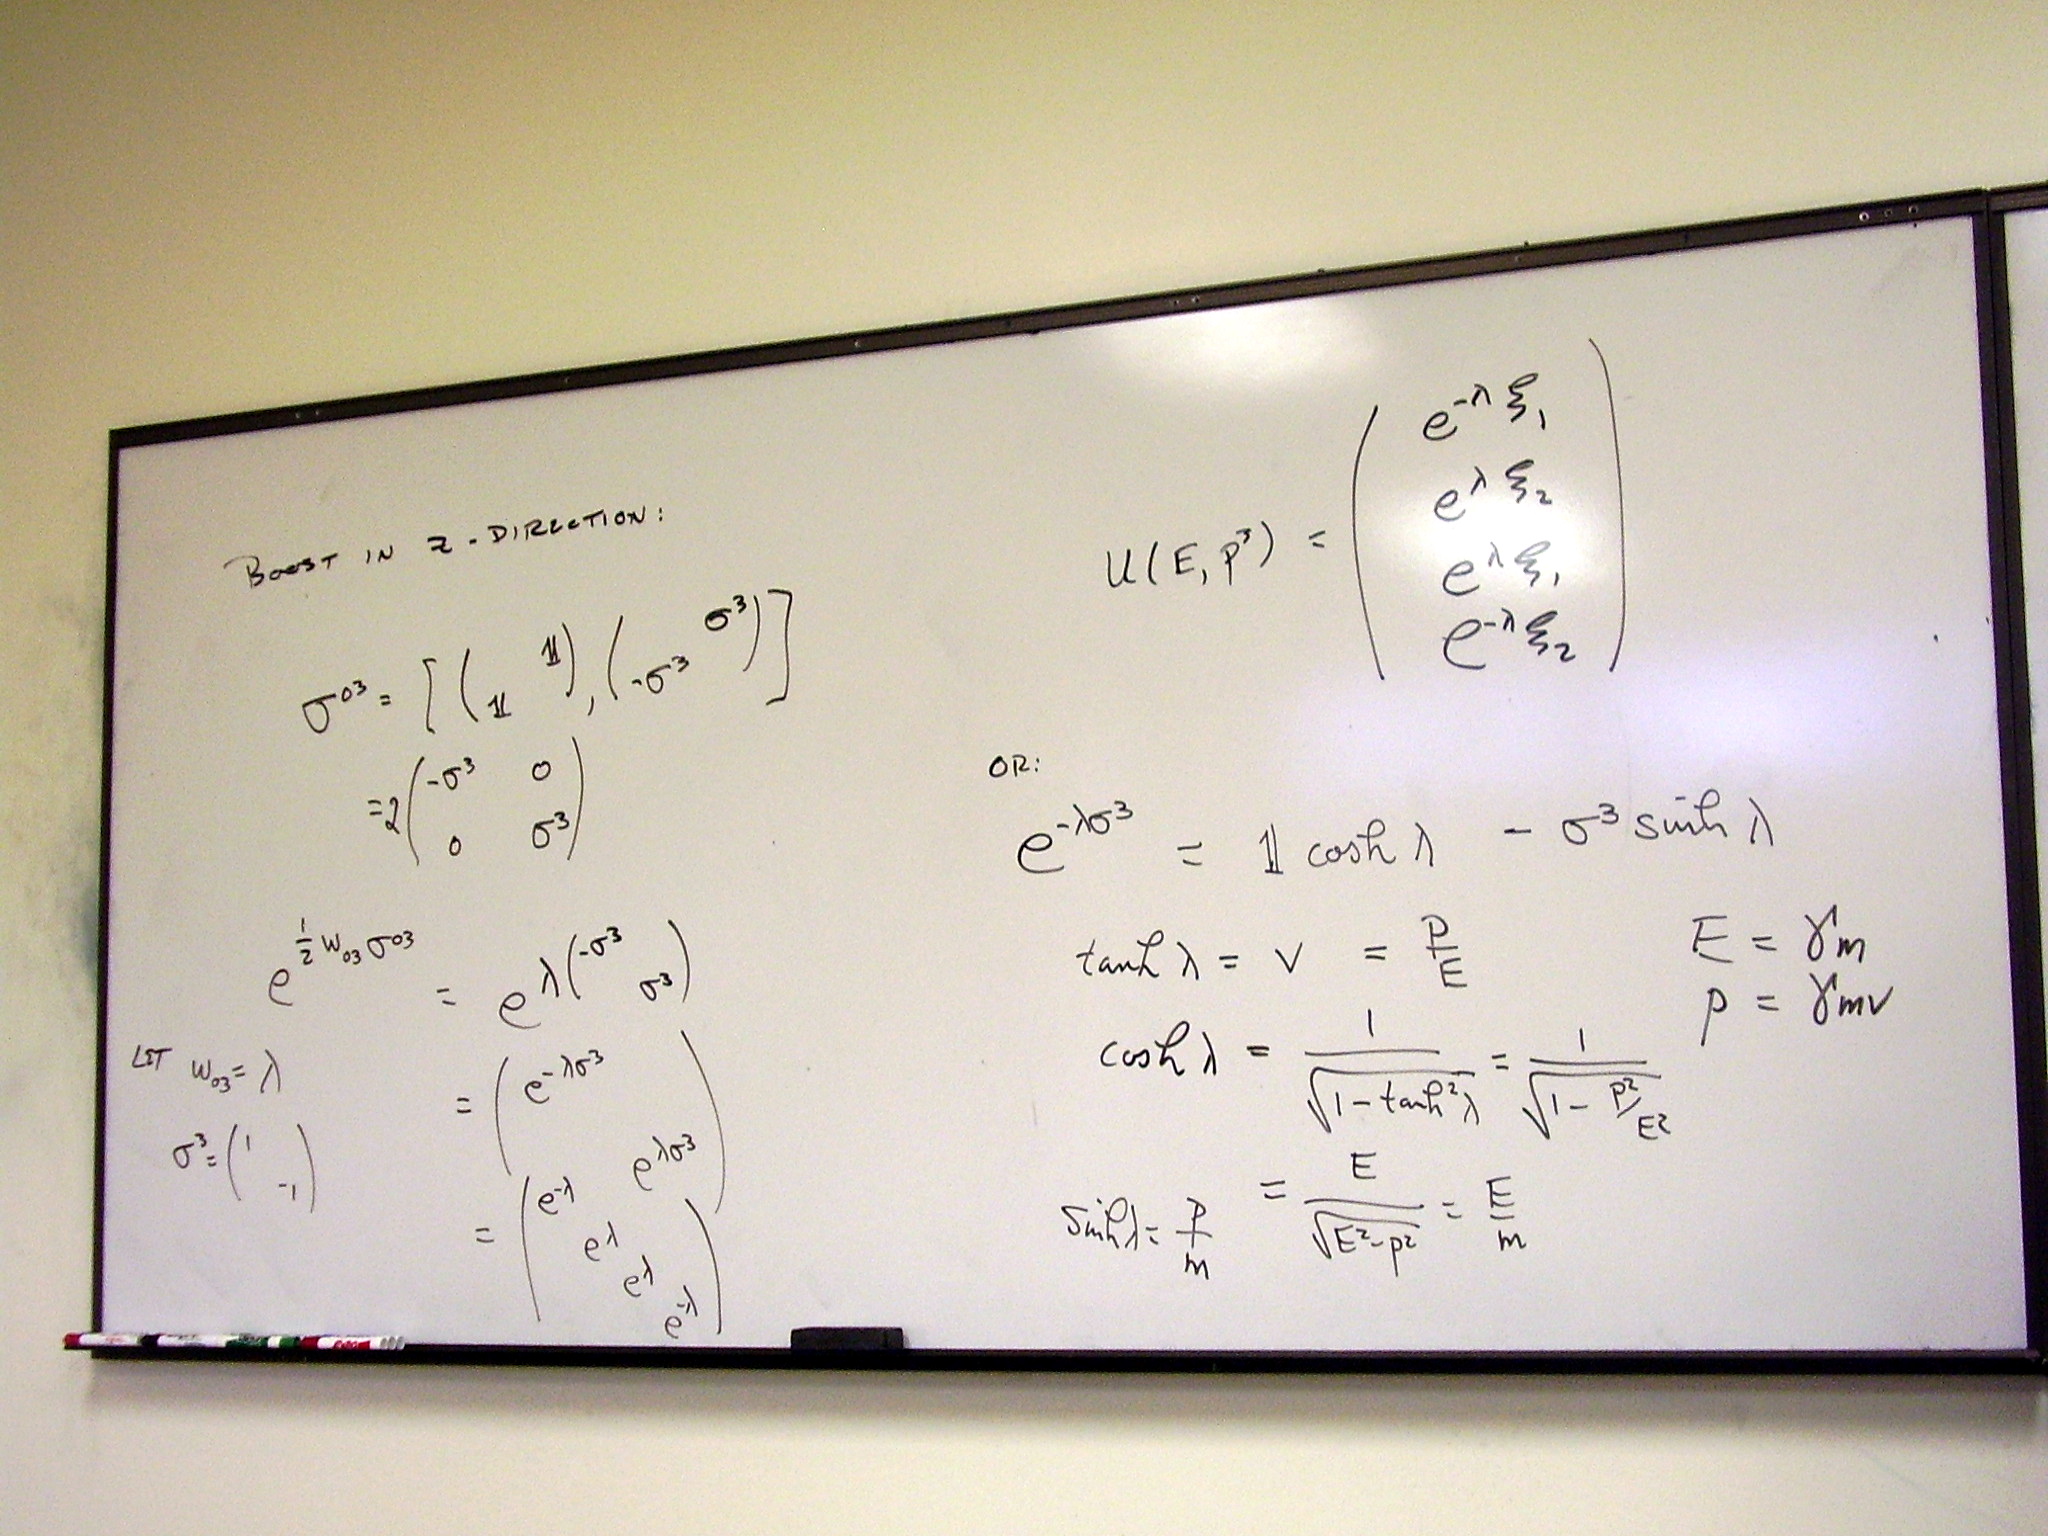 BOOST IN Z-DIRECTION:
σ⁰³ = [ ( 𝟙
𝟙 ), ( σ³
-σ³ ) ]
= 2 ( -σ³ 0
0 σ³ )
e^{½ w₀₃ σ⁰³} = e^{λ ( -σ³
σ³ )}
LET w₀₃ = λ
= ( e^{-λσ³}
e^{λσ³} )
σ³ = ( 1
-1 )
= ( e^{-λ}
e^{λ}
e^{λ}
e^{-λ} )
U(E, p³) = ( e^{-λ} ξ₁
e^{λ} ξ₂
e^{λ} ξ₁
e^{-λ} ξ₂ )
OR:
e^{-λσ³} = 𝟙 cosh λ - σ³ sinh λ
tanh λ = v = P/E
E = γm
p = γmv
cosh λ = 1/√(1-tanh²λ) = 1/√(1 - P²/E²)
= E/√(E²-p²) = E/m
sinh λ = P/m